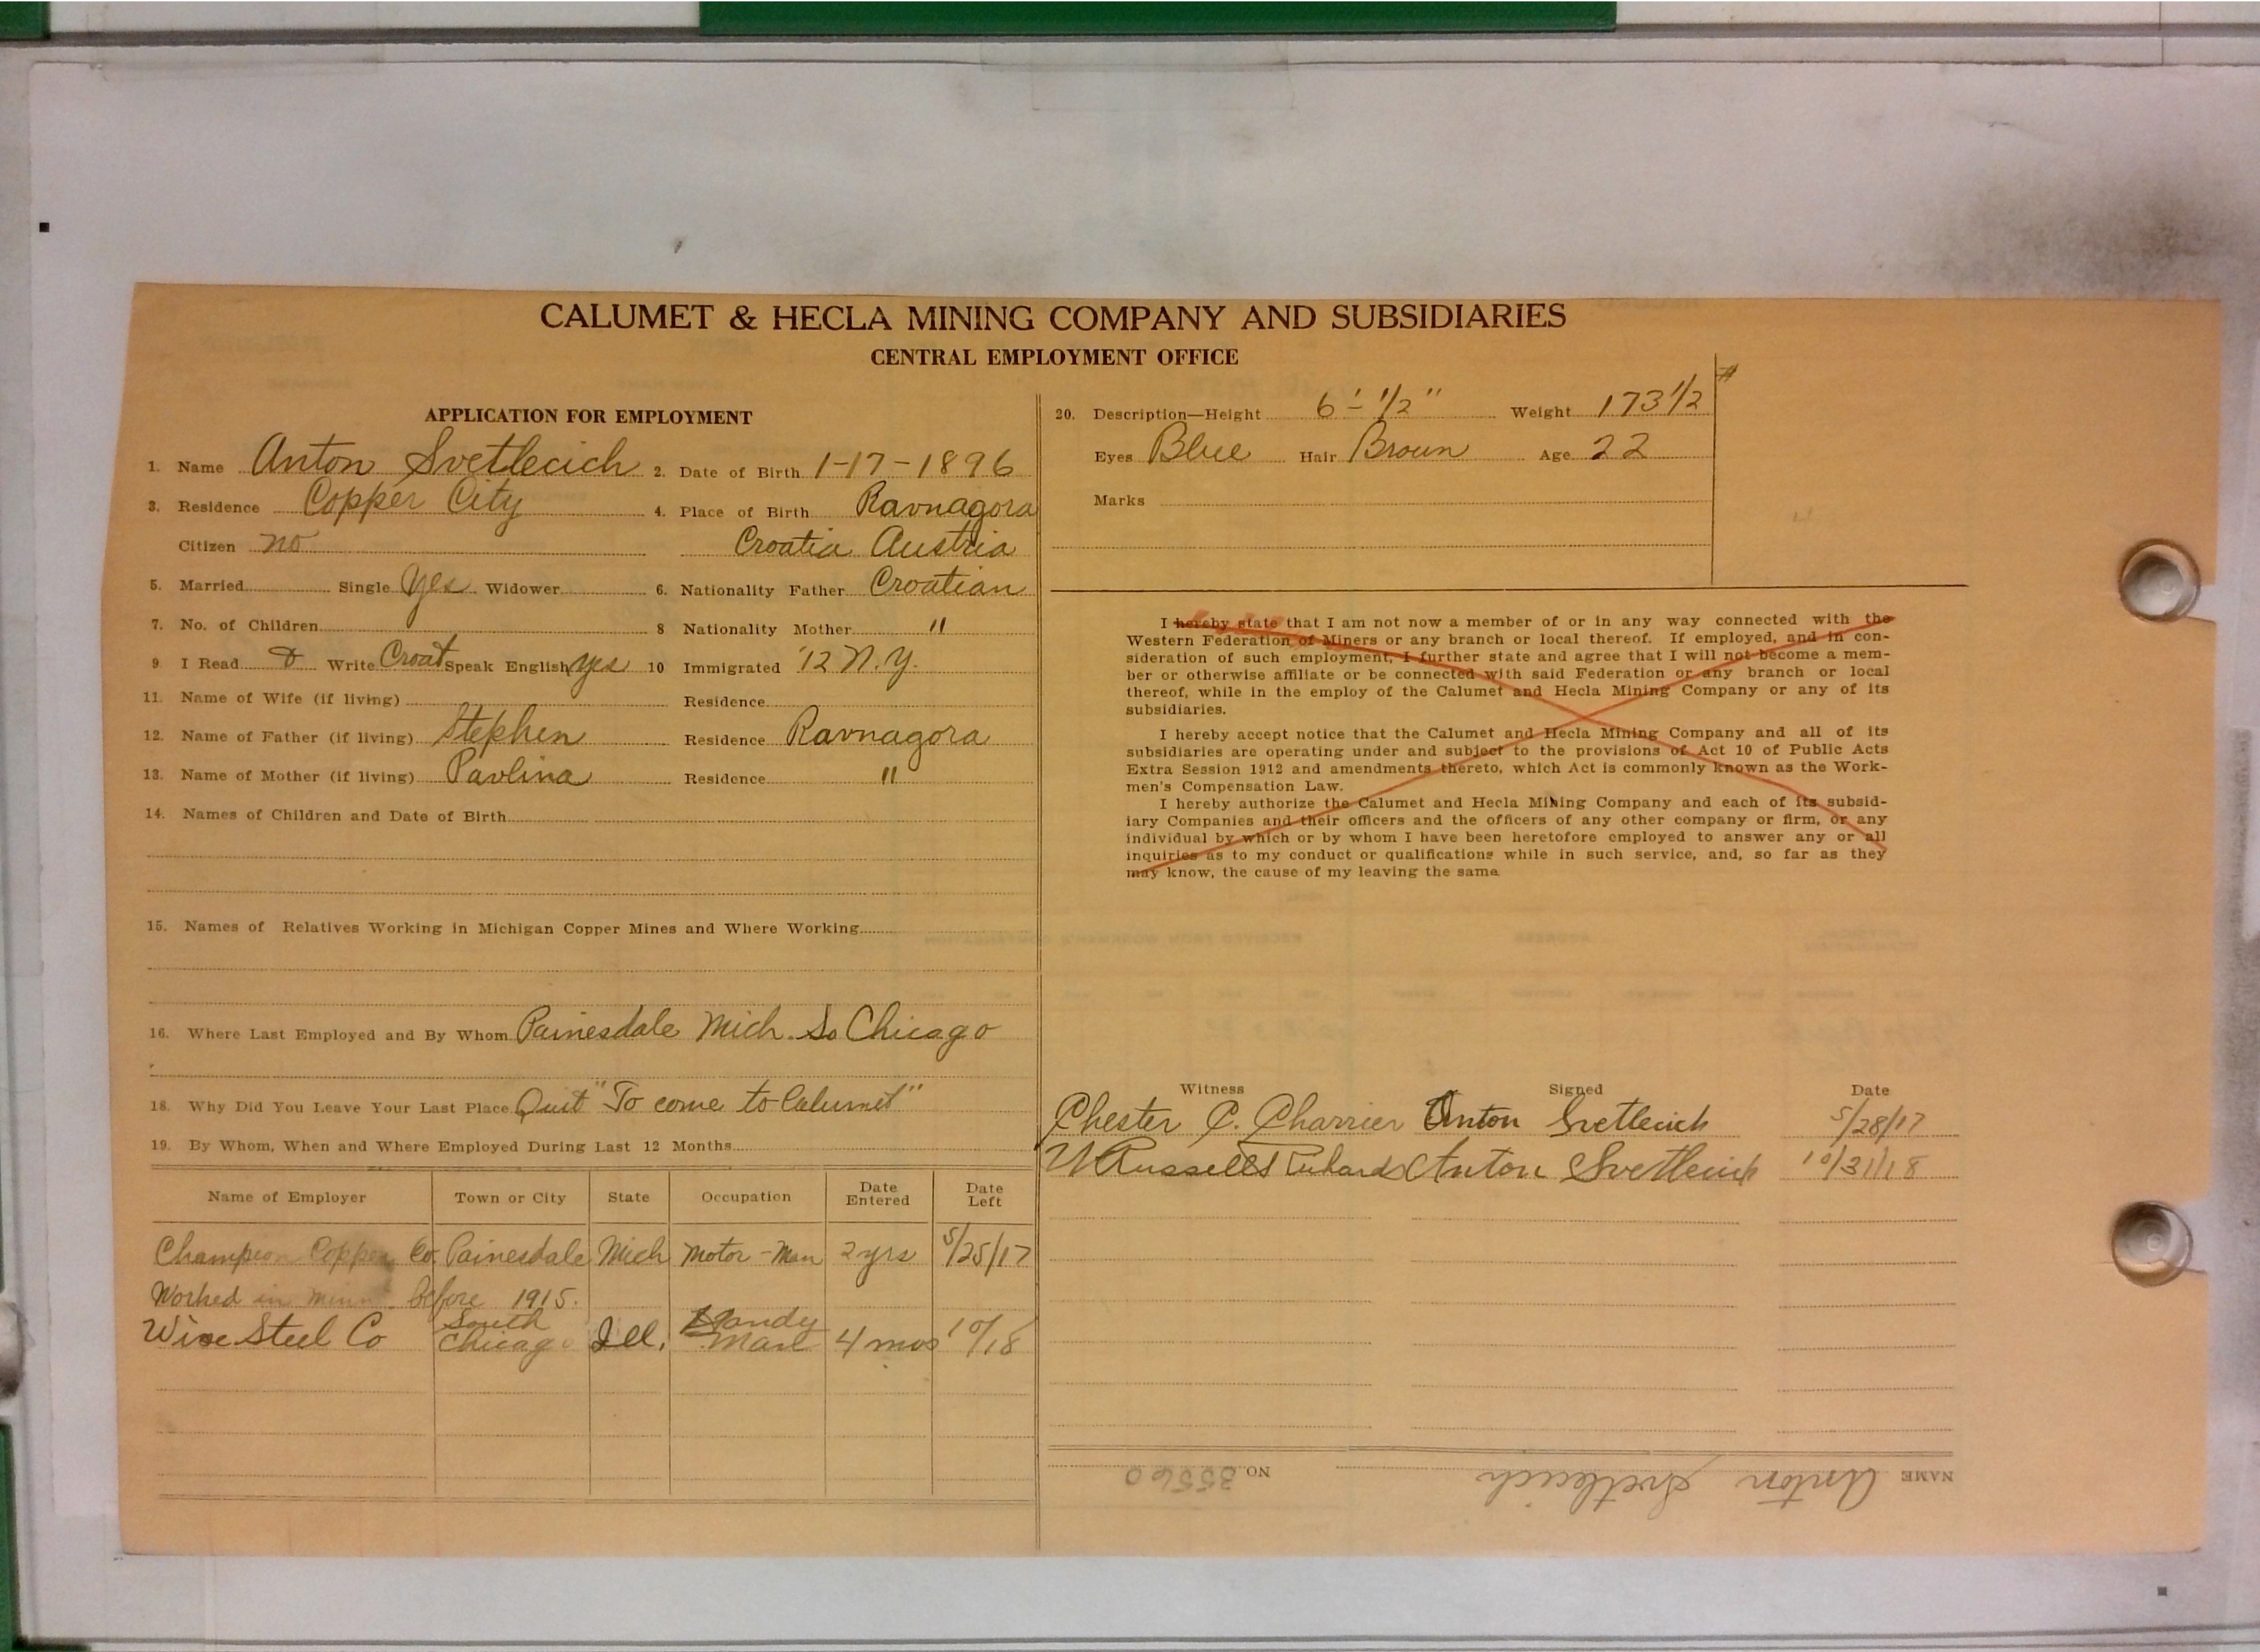 CALUMET & HECLA MINING COMPANY AND SUBSIDIARIES
CENTRAL EMPLOYMENT OFFICE
APPLICATION FOR EMPLOYMENT
1. Name Anton Svetlecich 2. Date of Birth 1-17-1896
3. Residence Copper City 4. Place of Birth Ravnagora
Citizen no Croatia Austria
5. Married Single Yes Widower 6. Nationality Father Croatian
7. No. of Children 8 Nationality Mother "
9 I Read & Write Croat Speak English yes 10 Immigrated '12 N.Y.
11. Name of Wife (if living) Residence
12. Name of Father (if living) Stephen Residence Ravnagora
13. Name of Mother (if living) Pavlina Residence "
14. Names of Children and Date of Birth
15. Names of Relatives Working in Michigan Copper Mines and Where Working
16. Where Last Employed and By Whom Painesdale Mich. So Chicago
18. Why Did You Leave Your Last Place Quit "To come to Calumet"
19. By Whom, When and Where Employed During Last 12 Months
Name of Employer Town or City State Occupation Date Entered Date Left
Champion Copper Co. Painesdale Mich Motor-Man 2 yrs 5/25/17
Worked in Minn. before 1915.
Wire Steel Co South Chicago Ill. Handy Man 4 mos 10/18
20. Description—Height 6'-1/2" Weight 173 1/2 #
Eyes Blue Hair Brown Age 22
Marks
I hereby state that I am not now a member of or in any way connected with the
Western Federation of Miners or any branch or local thereof. If employed, and in con-
sideration of such employment, I further state and agree that I will not become a mem-
ber or otherwise affiliate or be connected with said Federation or any branch or local
thereof, while in the employ of the Calumet and Hecla Mining Company or any of its
subsidiaries.
I hereby accept notice that the Calumet and Hecla Mining Company and all of its
subsidiaries are operating under and subject to the provisions of Act 10 of Public Acts
Extra Session 1912 and amendments thereto, which Act is commonly known as the Work-
men's Compensation Law.
I hereby authorize the Calumet and Hecla Mining Company and each of its subsid-
iary Companies and their officers and the officers of any other company or firm, or any
individual by which or by whom I have been heretofore employed to answer any or all
inquiries as to my conduct or qualifications while in such service, and, so far as they
may know, the cause of my leaving the same
Witness Signed Date
Chester C. Charrier Anton Svetlecich 5/28/17
Russell Richards Anton Svetlecich 10/31/18
NAME Anton Svetlecich NO. 35560